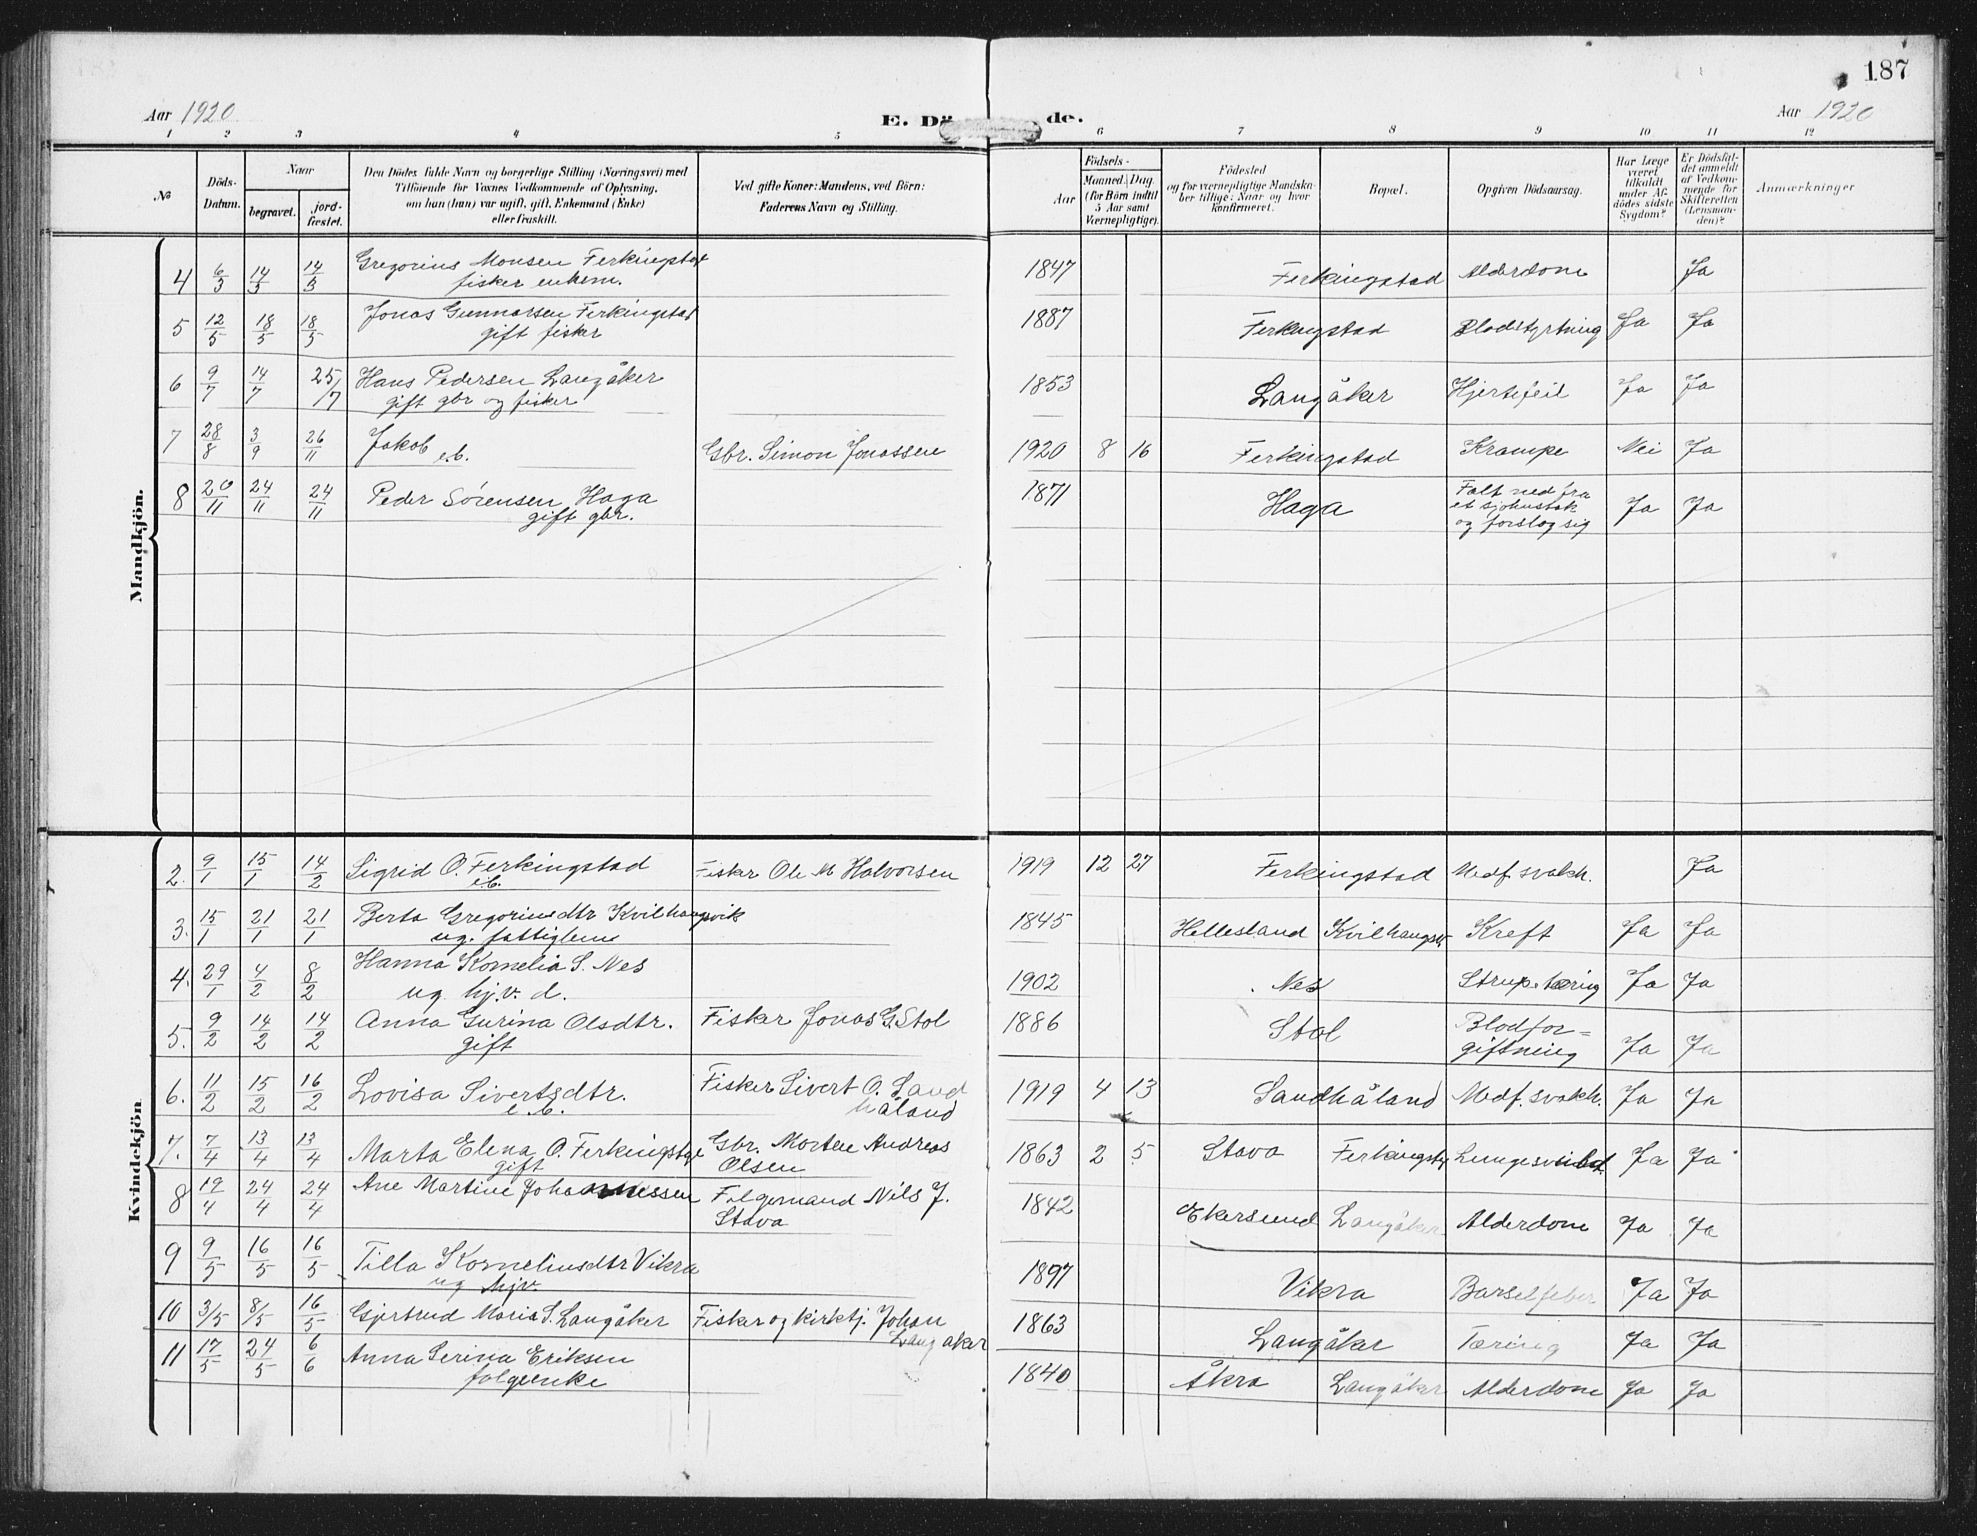 187
Aar 1920
E. Dö
de.
Aar 1920
1 2 3 4 5 6 7 8 9 10 11 12
№
Döds-
Datum.
Naar
begravet.
jord-
fæstet.
Den Dödes fulde Navn og borgerlige Stilling (Næringsvei) med
Tilföiende for Voxnes Vedkommende af Oplysning,
om han (hun) var ugift, gift, Enkemand (Enke)
eller fraskilt.
Ved gifte Koner: Mandens, ved Börn:
Faderens Navn og Stilling.
Födsels-
Aar
Maaned. Dag
(for Börn indtil
5 Aar samt
Værnepligtige).
Födested
og for værnepligtige Mandska-
ber tillige: Naar og hvor
konfirmeret.
Bopæl.
Opgiven Dödsaarsag.
Har Læge
været
tilkaldt
under Af-
dödes sidste
Sygdom?
Er Dödsfal-
det anmeldt
af Vedkom-
mende for
Skifteretten
(Lensman-
den)?
Anmærkninger
Mandkjön.
4 6/3 14/3 14/3 Gregorius Monsen Ferkingstad 1847 Ferkingstad Alderdom Ja
fisker enkem.
5 12/5 18/5 18/5 Jonas Gunnarsen Ferkingstad 1887 Ferkingstad Blodstyrtning Ja Ja
gift fisker
6 9/7 14/7 25/7 Hans Pedersen Langåker 1853 Langåker Hjertefeil Ja Ja
gift gbr og fisker
7 28/8 3/9 26/11 Jakob e.b. Gbr. Simon Jonassen 1920 8 16 Ferkingstad Krampe Nei Ja
8 20/11 24/11 24/11 Peder Sørensen Haga 1871 Haga Falt ned fra
gift gbr. et sjøhustak Ja Ja
og forslog sig
Kvindekjön
2. 9/1 15/1 14/2 Sigrid O. Ferkingstad Fisker Ole M Halvorsen 1919 12 27 Ferkingstad Medf. svakh. Ja
e.b.
3. 15/1 21/1 21/1 Berta Gregoriusdtr Kvilhaugsvik 1845 Hellesland Kvilhaugsv. Kreft Ja Ja
ug. fattiglem
4. 29/1 4/2 8/2 Hanna Kornelia S. Nes 1902 Nes Strupetæring Ja Ja
ug. hj.v. d.
5. 9/2 14/2 14/2 Anna Gurina Olsdtr. Fisker Jonas G. Stol 1886 Stol Blodfor=
gift giftning Ja Ja
6. 11/2 15/2 16/2 Lovisa Sivertsdtr. Fisker Sivert O. Sand 1919 4 13 Sandhåland Medf. svakh. Ja Ja
e.b. håland
7. 7/4 13/4 13/4 Marta Elena O. Ferkingstad Gbr. Morten Andreas 1863 2 5 Stava Ferkingstad Ja Ja
gift Olsen
8 19/4 24/4 24/4 Ane Martine Johannessen Folgemand Nils J. 1842 Ekersund Langåker Alderdom Ja Ja
Stava
9 9/5 16/5 16/5 Tilla Korneliusdtr Vikra 1897 Vikra Barselfeber Ja Ja
ug hjv.
10 3/5 8/5 16/5 Gjertrud Maria S. Langåker Fisker og kirketj. Johan 1863 Langåker Tæring Ja Ja
Langåker
11 17/5 24/5 6/6 Anna Serina Eriksen 1840 Åkra Langåker Alderdom Ja Ja
folgeenke